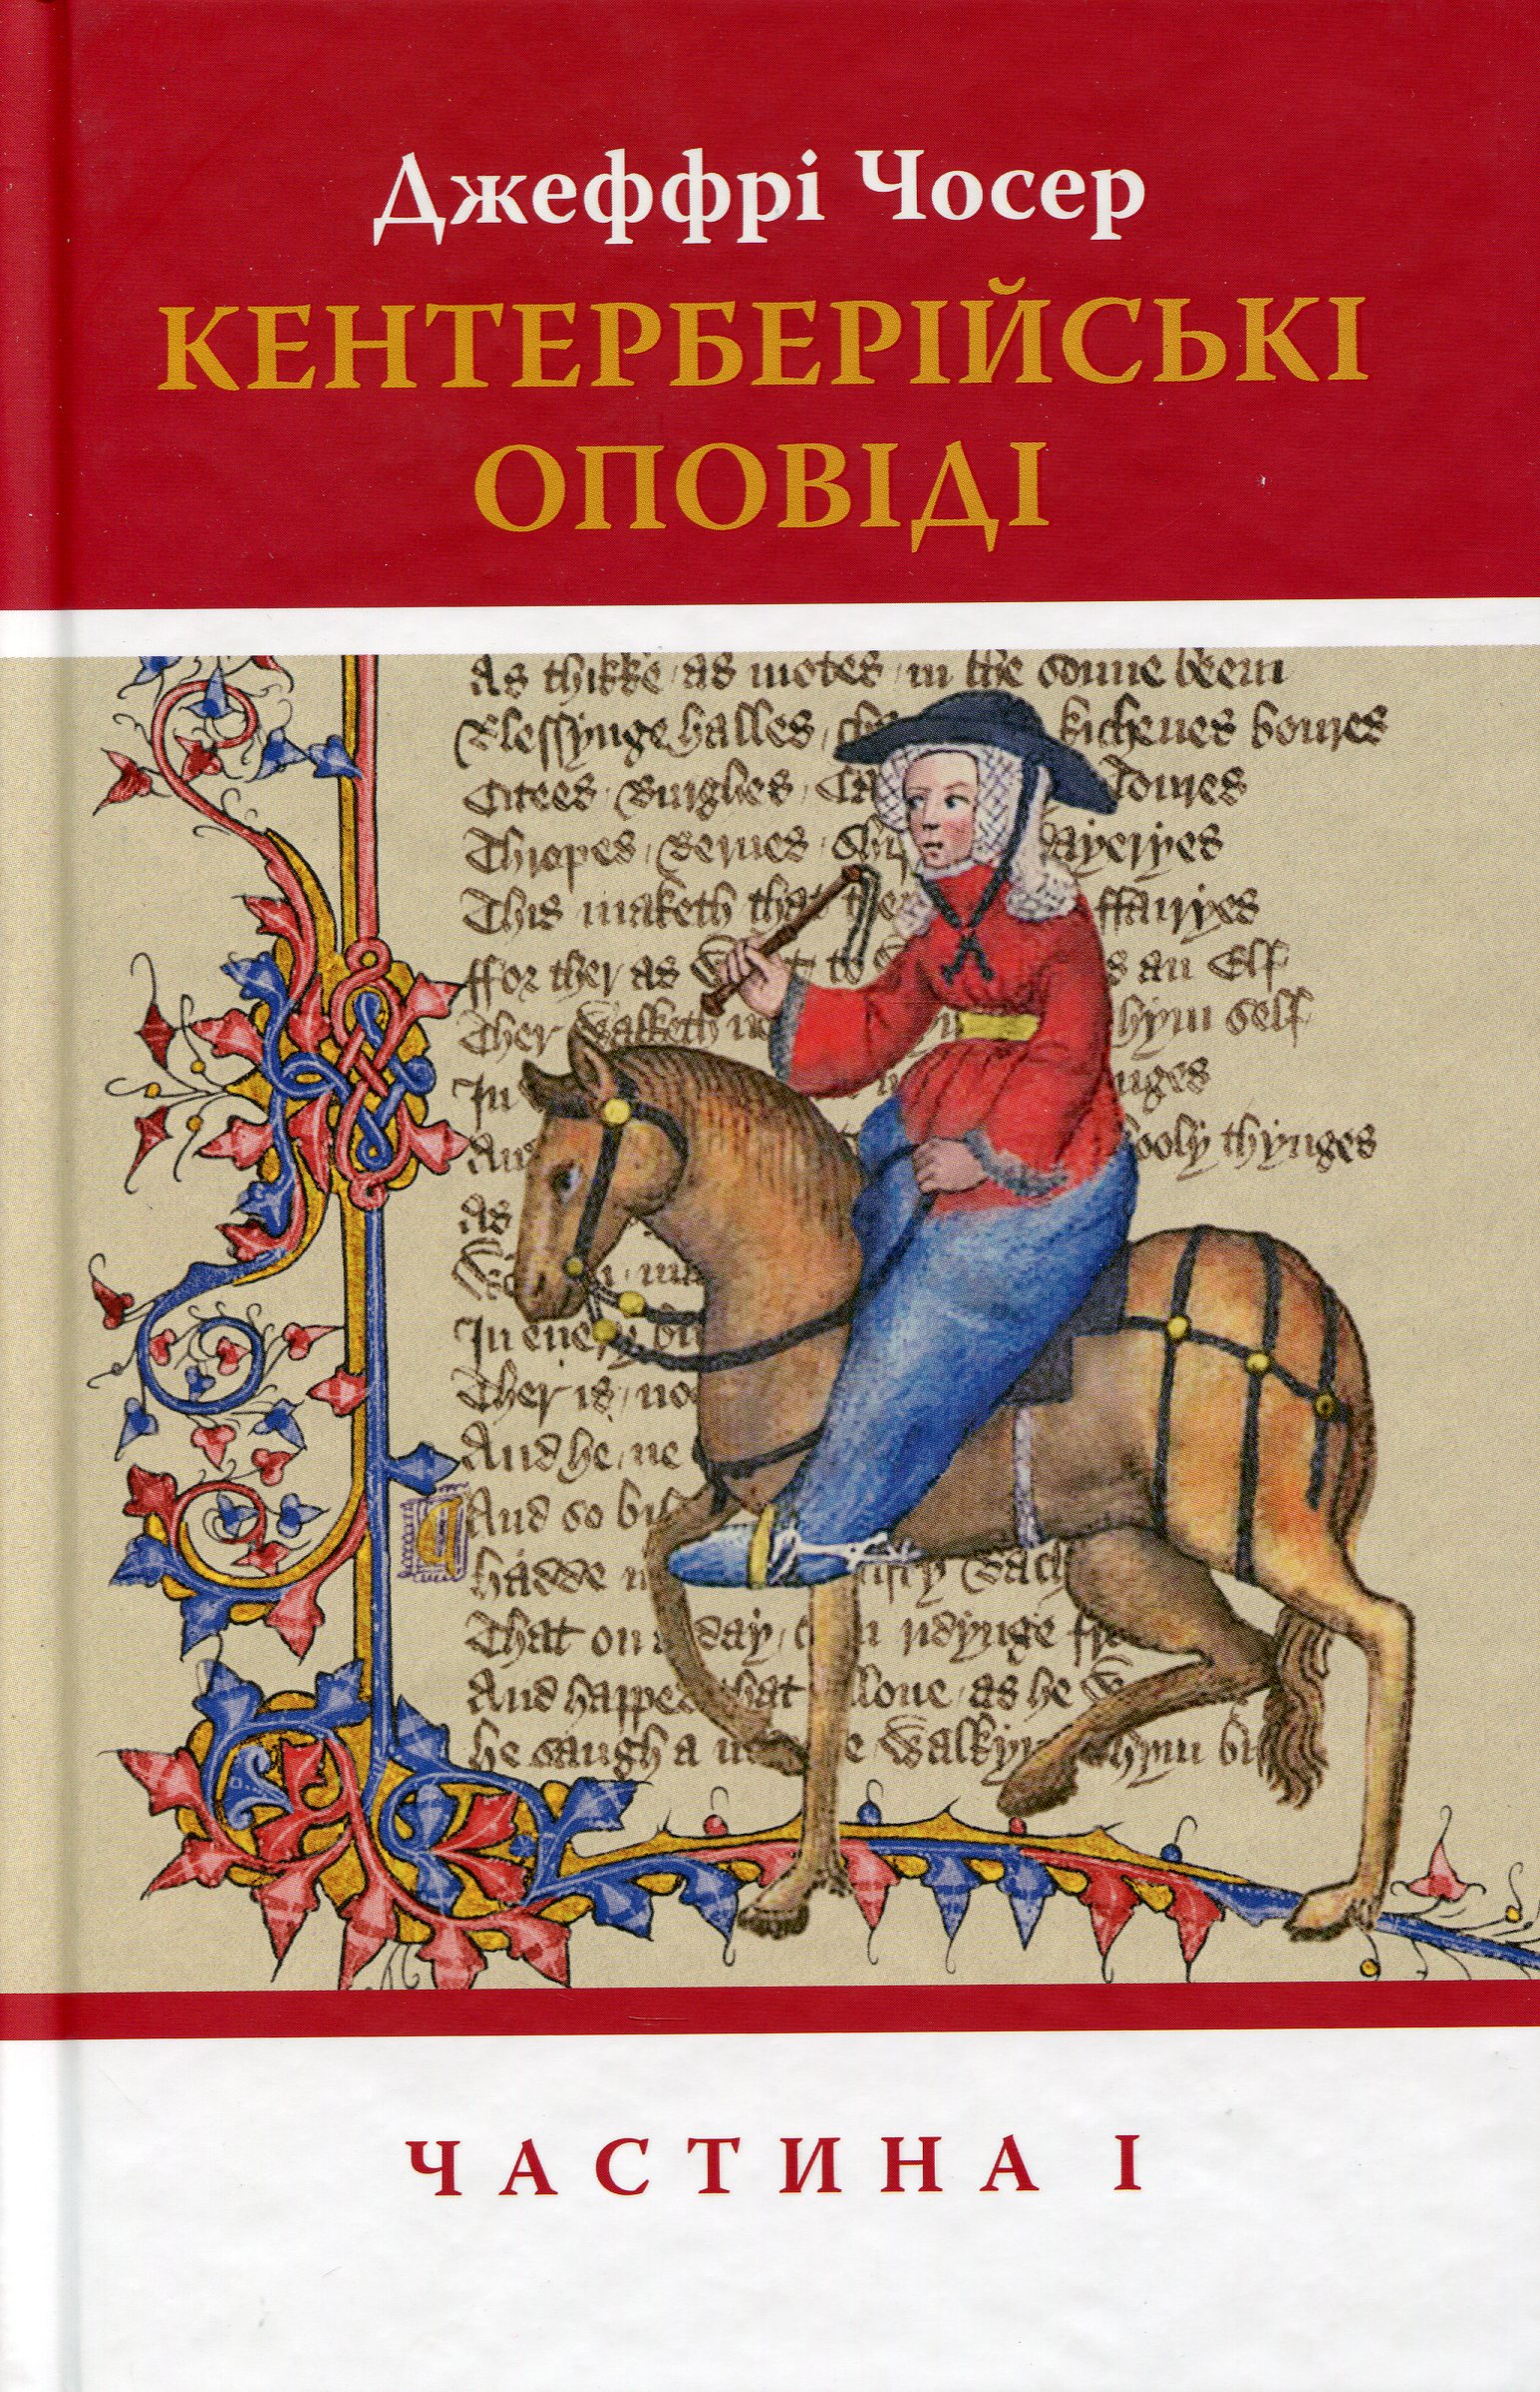 Джеффрі Чосер
КЕНТЕРБЕРІЙСЬКІ
ОПОВІДІ
As thikke as motes in the sonne beem
Blessynge halles kichenes boures
Citees Burghes Toures
Thropes Bernes dayeryes
This maketh that ffairyes
ffor ther as an Elf
Ther walketh hym self
In
And hooly thynges
As
In euery
Ther is
And he ne
And so
hadde
That on a day ridynge
And happed that allone as he
he saugh a hym
ЧАСТИНА І